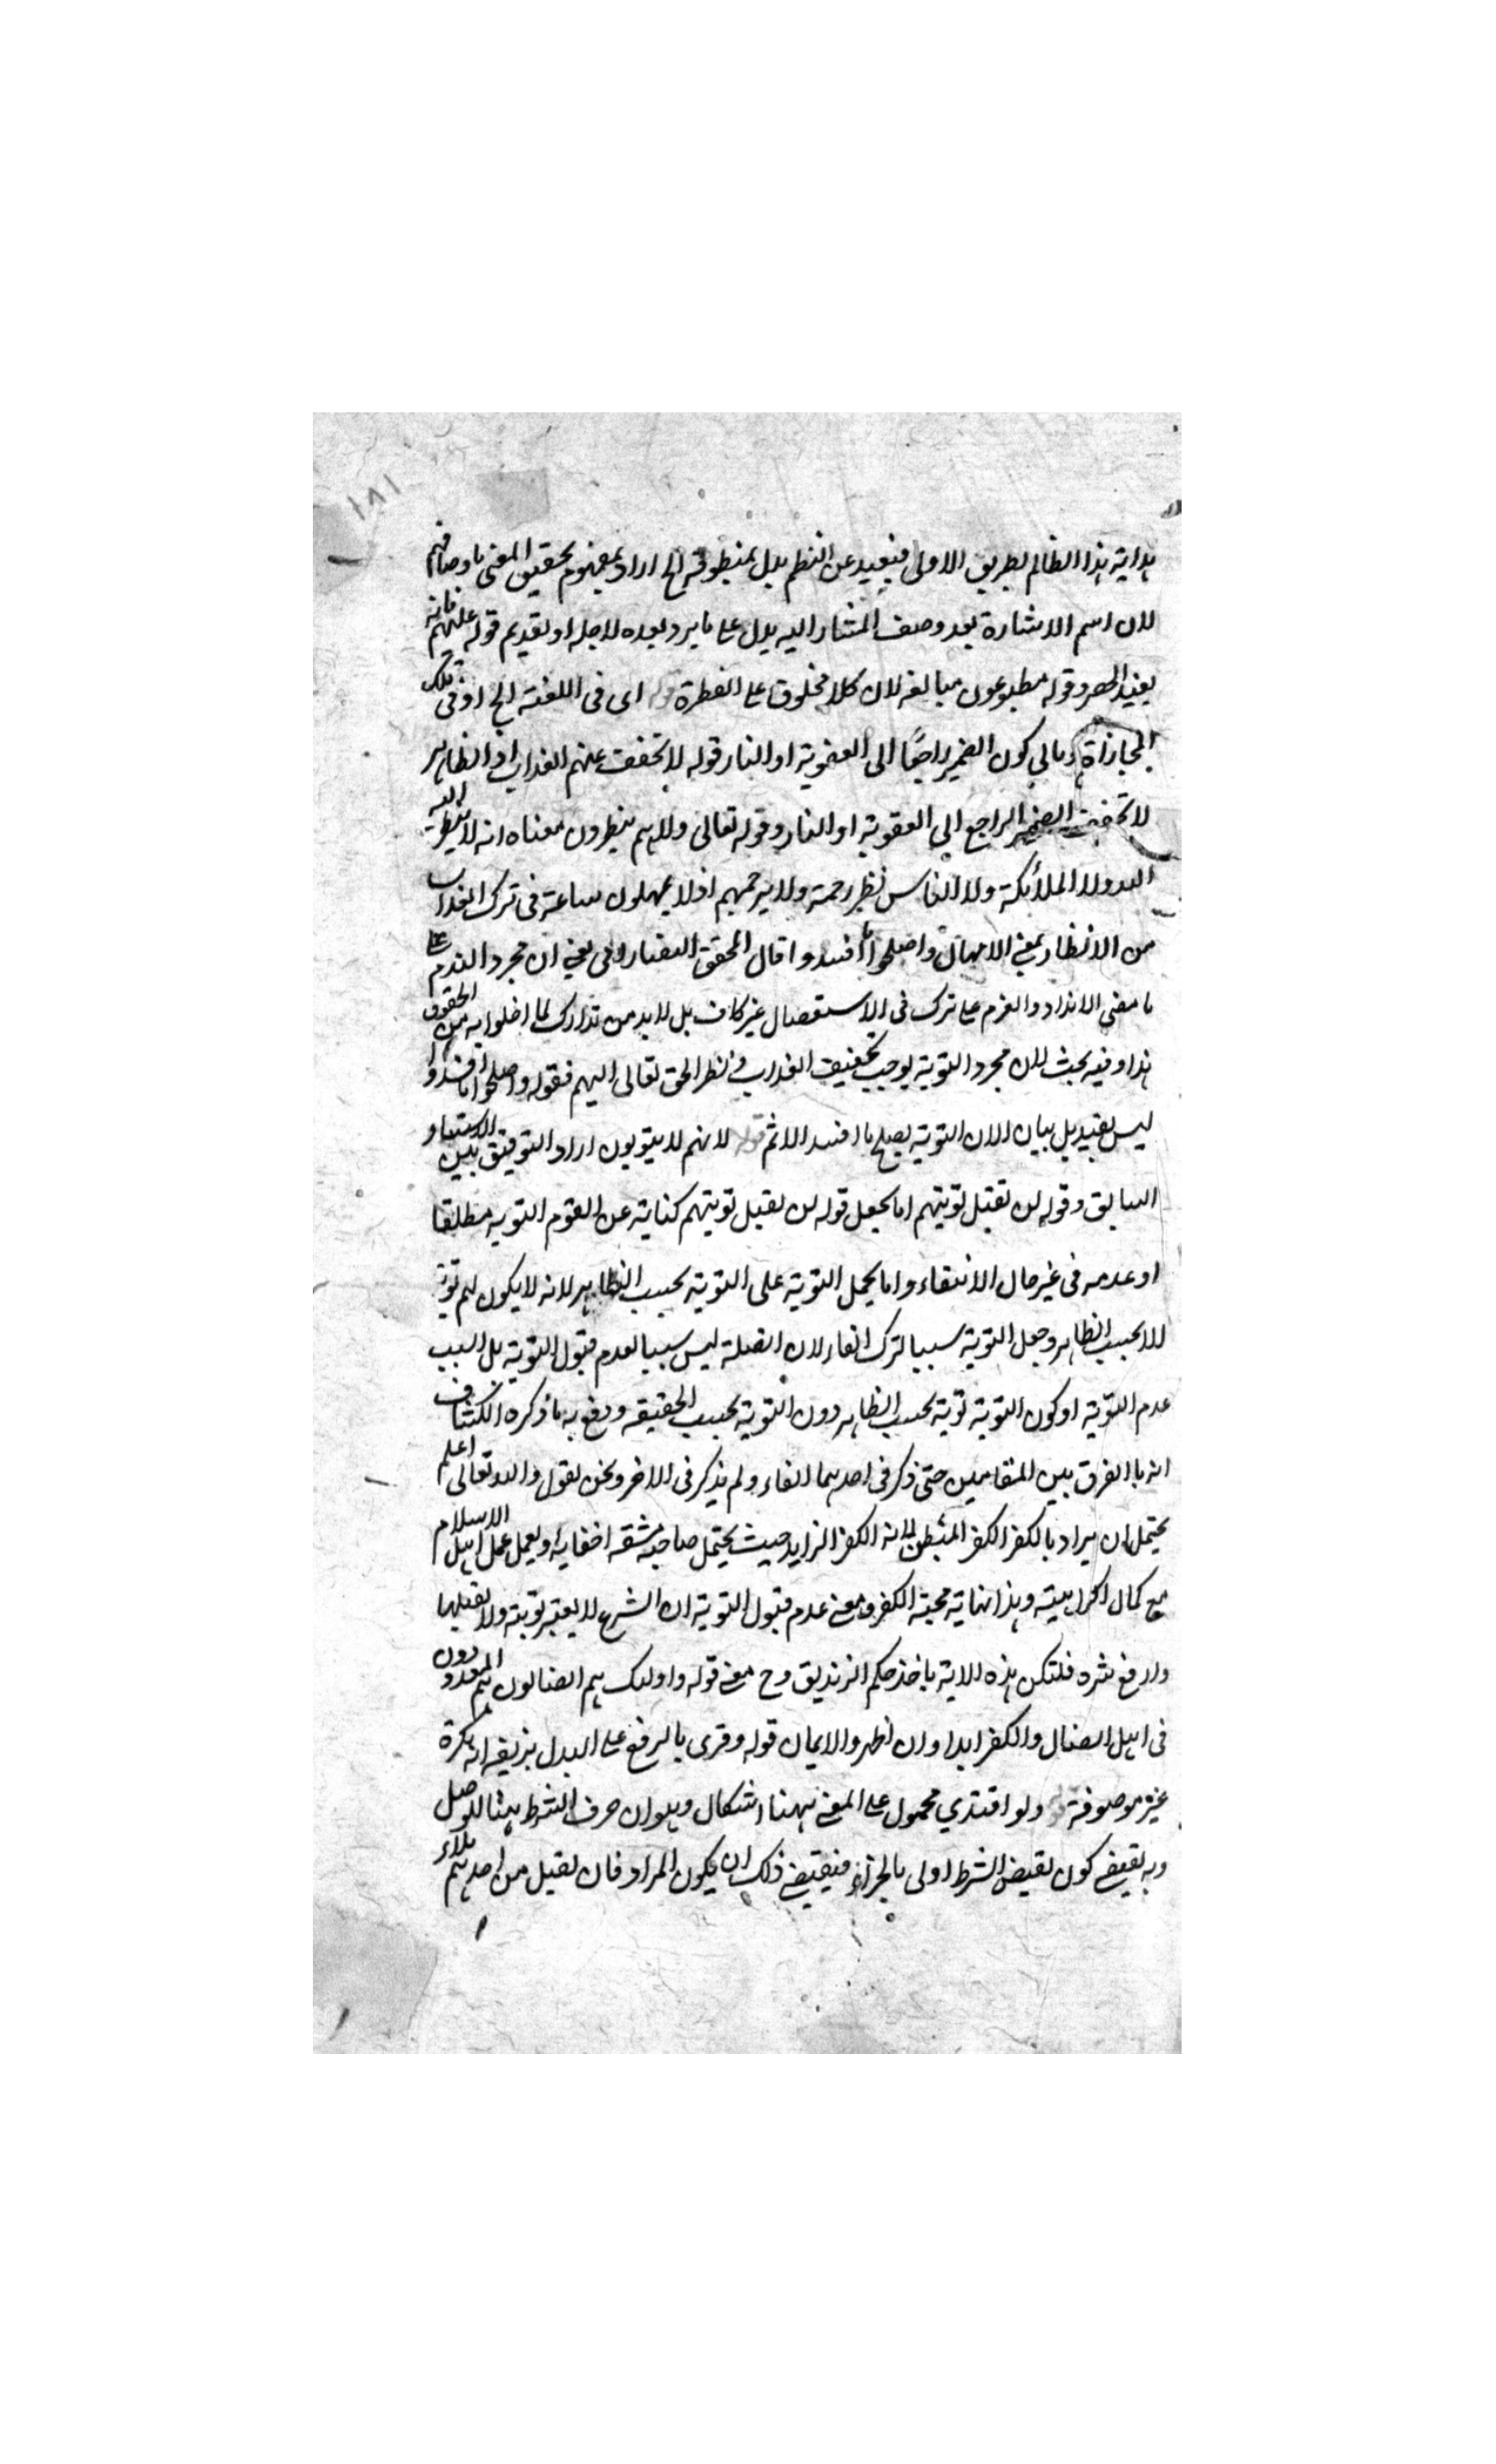 ١٨١
هداية هذا الظالم بطريق الاولى فبعيد عن النظم يدل بمنطوقه الخ اراد بمفهوم تحقيق المعنى باوصافهم
لان اسم الاشارة بعد وصف المشار اليه يدل على ما يرد بعده لاجله او تقديم قوله عليهم فانه
يفيد الحصر وقوله مطبوعون مبالغه لان كلا مخلوق على الفطرة قوله اى فى اللغنة الخ او فى تلك
المجازاة كون الضمير راجعا الى العقوبة او النار قوله لا تخفف عنهم العذاب اذ الظاهر
لا تخفف الضمير الراجع الى العقوبة او النار وقوله تعالى ولا هم ينظرون معناه انه لا ينظر اليه
الله ولا الملائكة ولا الناس نظر رحمة ولا يرحمهم اذ لا يمهلون ساعة فى ترك العذاب
من الانظار بمعنى الامهال واصلحوا ما افسدوا قال المحقق التفتازانى يعنى ان مجرد الندم على
ما مضى الانداد والعزم على ترك فى الاستقصال غير كاف بل لا بد من تدارك لما اخلوا به من الحقوق
هذا وفيه بحث لان مجرد التوبة يوجب تخفيف العذاب ونظر الحق تعالى اليهم فقوله واصلحوا ما افسدوا
ليس بقيد بل بيان لان التوبة يصلح ما افسد الاثم قوله لانهم لا يتوبون اراد التوفيق بين الاستثناء
السابق وقوله لن تقبل توبتهم اما بجعل قوله لن تقبل توبتهم كناية عن القوم التوبه مطلقا
او عدمه فى غير حال الانتفاء واما بحمل التوبة على التوبة بحسب الظاهر لانه لا يكون لهم توبة
الا بحسب الظاهر وجعل التوبة سببا لترك الفاء لان الصلة ليس سببا لعدم قبول التوبة بل السبب
عدم التوبة او كون التوبة توبة بحسب الظاهر دون التوبة بحسب الحقيقه ودفع به ما ذكره الكشاف
انه ما الفرق بين المقامين حتى ذكر فى احدهما الفاء ولم يذكر فى الاخر ونحن نقول والله تعالى اعلم
يحتمل ان يراد بالكفر الكفر المبطن لانه الكفر الزايد حيث يحتمل صاحبه مشقه اخفايه ويعمل عمل اهل الاسلام
مع كمال اكراهيته وهذا نهاية محبة الكفر ومعنى عدم قبول التوبة ان الشرع لا يعتبر توبته ولا يقبلها
وادفع شره فلتكن هذه الاية ماخذ حكم الزنديق وح معنى قوله واوليك هم الضالون هم المعدودون
فى اهل الضلال والكفر ابدا وان اظهروا الايمان قوله وقرى بالرفع على البدل بزيفه انه نكرة
غير موصوفة قوله ولو افتدي محمول على المعنى ههنا اشكال وهو ان حرف الشرط هنا للوصل
وبه يقتضى كون نقيض الشرط اولى بالجزاء فيقتضى ذلك ان يكون المراد فان تقبل من احدهم ملاء